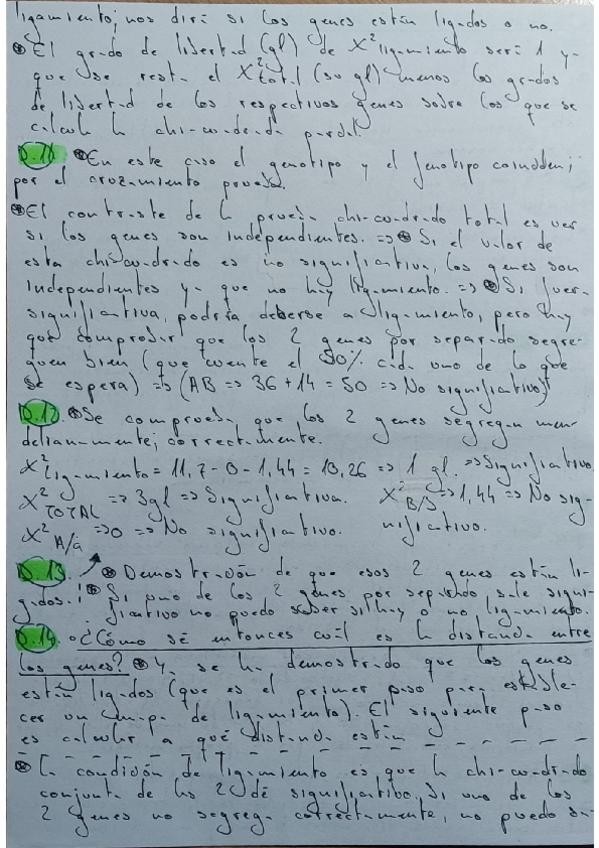 ligamiento; nos dirá si los genes están ligados o no.
El grado de libertad (gl) de X² ligamiento será 1 ya
que se resta el X² total (su gl) menos los grados
de libertad de los respectivos genes sobre los que se
calcula la chi-cuadrado parcial.
D.11 En este caso el genotipo y el fenotipo coinciden;
por el cruzamiento prueba.
El contraste de la prueba chi-cuadrado total es ver
si los genes son independientes. => Si el valor de
esta chi-cuadrado es no significativa, los genes son
independientes ya que no hay ligamiento. => Si fuera
significativa, podría deberse a ligamiento, pero hay
que comprobar que los 2 genes por separado segre-
guen bien (que cuente el 50% cada uno de lo que
se espera) => (AB => 36 + 14 = 50 => No significativo)
D.12. Se comprueba que los 2 genes segregan men-
delianamente; correctamente.
X² ligamiento = 11,7 - 0 - 1,44 = 10,26 => 1 gl. => Significativo
X² TOTAL => 3gl => Significativa. X² B/b => 1,44 => No sig-
X² A/a => 0 => No significativo. nificativo.
D.13. Demostración de que esos 2 genes están li-
gados. Si uno de los 2 genes por separado, sale signi-
ficativo no puedo saber si hay o no ligamiento.
D.14 ¿Cómo sé entonces cuál es la distancia entre
los genes? Ya se ha demostrado que los genes
están ligados (que es el primer paso para estable-
cer un mapa de ligamiento). El siguiente paso
es calcular a qué distancia están
La condición de ligamiento es que la chi-cuadrado
conjunta de los 2 dé significativo. Si uno de los
2 genes no segrega correctamente, no puedo sa-